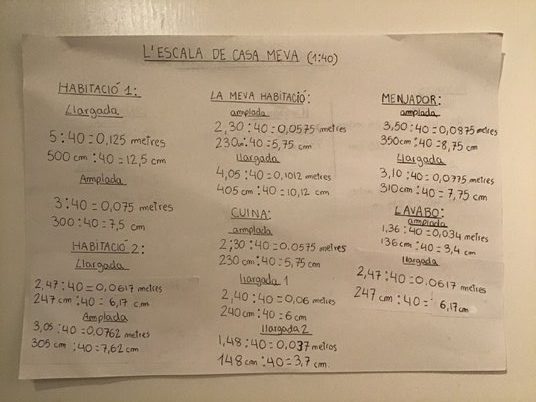 L'ESCALA DE CASA MEVA (1:40)
HABITACIÓ 1:
Llargada
5:40=0,125 metres
500 cm:40=12,5 cm
Amplada
3:40=0,075 metres
300:40=7,5 cm
HABITACIÓ 2:
Llargada
2,47:40=0,0617 metres
247 cm:40= 6,17 cm
Amplada
3,05:40=0,0762 metres
305 cm:40=7,62 cm
LA MEVA HABITACIÓ:
amplada
2,30:40=0,0575 metres
230cm:40=5,75 cm
llargada
4,05:40=0,1012 metres
405 cm:40=10,12 cm
CUINA:
amplada
2,30:40=0,0575 metres
230 cm:40=5,75 cm
llargada 1
2,40:40=0,06 metres
240 cm:40=6 cm
llargada 2
1,48:40=0,037 metres
148 cm:40=3,7 cm
MENJADOR:
amplada
3,50:40=0,0875 metres
350cm:40=8,75 cm
Llargada
3,10:40=0,0775 metres
310 cm:40=7,75 cm
LAVABO:
amplada
1,36:40=0,034 metres
136 cm:40=3,4 cm
llargada
2,47:40=0,0617 metres
247 cm:40= 6,17cm